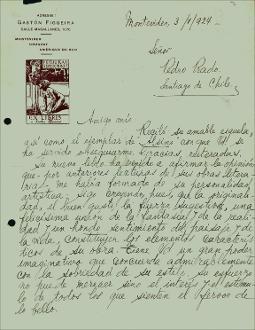 ADRESSE:
GASTÓN FIGUEIRA
CALLE MAGALLANES,
MONTEVIDEO
URUGUAY
AMÉRIQUE DU SUD
EX LIBRIS
Montevideo, 3/1/924.-
Señor
Pedro Prado.
Santiago de Chile.
Amigo mío
Recibí su amable esquela,
así como el ejemplar de Alsino con que Vd. se
ha servido obsequiarme. Gracias, reiteradas.
Su nuevo libro ha venido a afirmar la opinión
que por anteriores lecturas de sus obras litera-
rias me había formado de su personalidad
artística: sigo creyendo pues, que la originali-
dad, el buen gusto, la fuerza sugestiva, una
felicísima unión de la fantasía y de la reali-
dad y un hondo sentimiento del paisaje y de
la vida, constituyen los elementos caracterís-
ticos de su obra. Tiene Vd. un gran poder
imaginativo que concuerda admirablemente
con la sobriedad de su estilo. Su esfuerzo
no puede merecer sino el interés y el estímu-
lo de todos los que sienten el fervor de
lo bello.